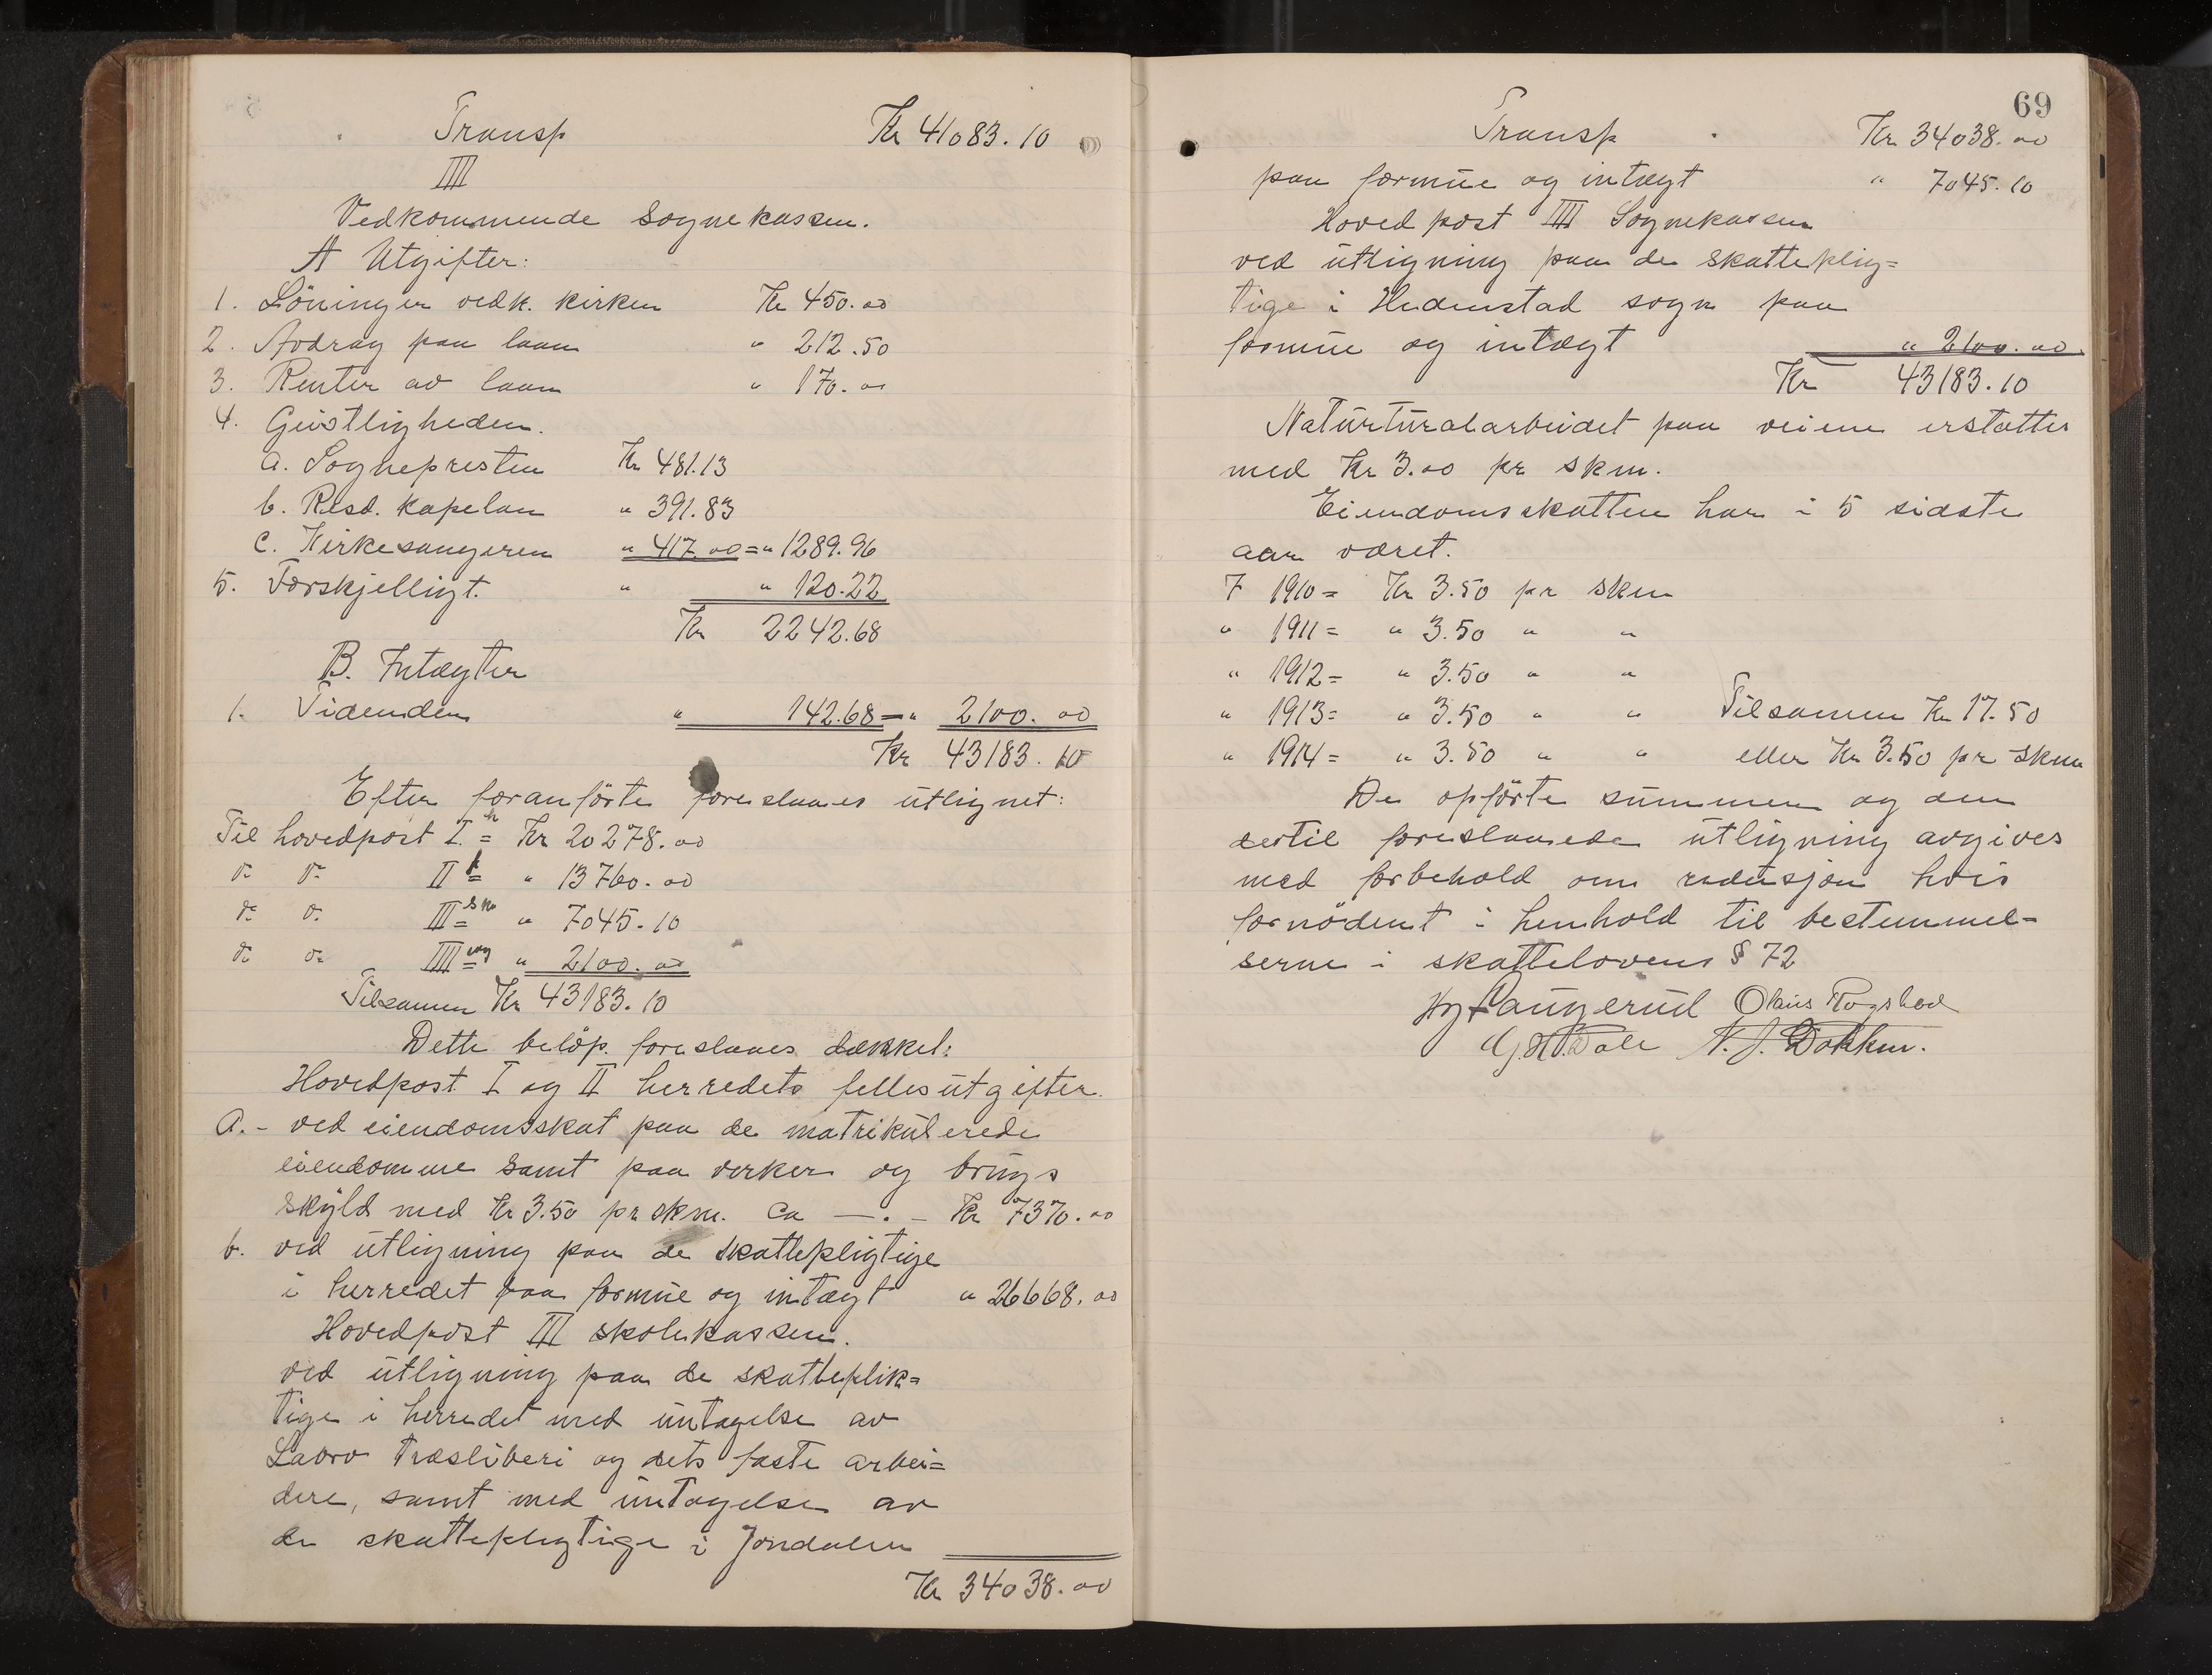 Transp Kr 41083.10
IIII
Vedkommende Sognekassen.
A Utgifter:
1. Löninger vedk. kirken Kr 450.00
2. Avdrag paa laan " 212.50
3. Renter av laan " 170.00
4. Geistligheden.
a. Sognepresten Kr 481.13
b. Resd. kapelan " 391.83
c. Kirkesangeren " 417.00 = " 1289.96
5. Forskjelligt. " " 120.22
Kr 2242.68
B. Intægter
1. Tidenden " 142.68 = " 2100.00
Kr 43183.10
Efter foranförte foreslaaes utlignet:
Til hovedpost I. = Kr 20278.00
do do II " 13760.00
do do III " 7045.10
do do IIII " 2100.00
Tilsamen Kr 43183.10
Dette belöp foreslaaes dækket:
Hovedpost I og II herredets fellesutgifter.
a. - ved eiendomsskat paa de matrikulerede
eiendomme samt paa verker og brugs
skyld med Kr 3.50 pr skm. ca —.— Kr 7370.00
b. ved utligning paa de skattepligtige
i herredet paa formue og intægt " 26668.00
Hovedpost III skolekassen.
ved utligning paa de skatteplik=
tige i herredet med untagelse av
Labro træsliberi og dets faste arbei=
dere, samt med untagelse av
de skattepligtige i Jondalen
Kr 34038.00
69
Transp Kr 34038.00
paa formue og intægt " 7045.10
Hovedpost IIII Sognekassen
ved utligning paa de skatteplig=
tige i Hedenstad sogn paa
formue og intægt " 2100.00
Kr 43183.10
Naturturalarbeidet paa veiene erstattes
med Kr 3.00 pr skm.
Eiendomsskatten har i 5 sidste
aar været.
I 1910 = Kr 3.50 pr skm
" 1911 = " 3.50 " "
" 1912 = " 3.50 " "
" 1913 = " 3.50 " " Tilsamen Kr 17.50
" 1914 = " 3.50 " " eller Kr 3.50 pr skm
De opförte summer og den
dertil foreslaaede utligning avgives
med forbehold om reduksjon hvis
fornödent i henhold til bestemmel=
serne i skattelovens § 72
Paugerud Olaus Rogstad
Dale N. J. Dokken.